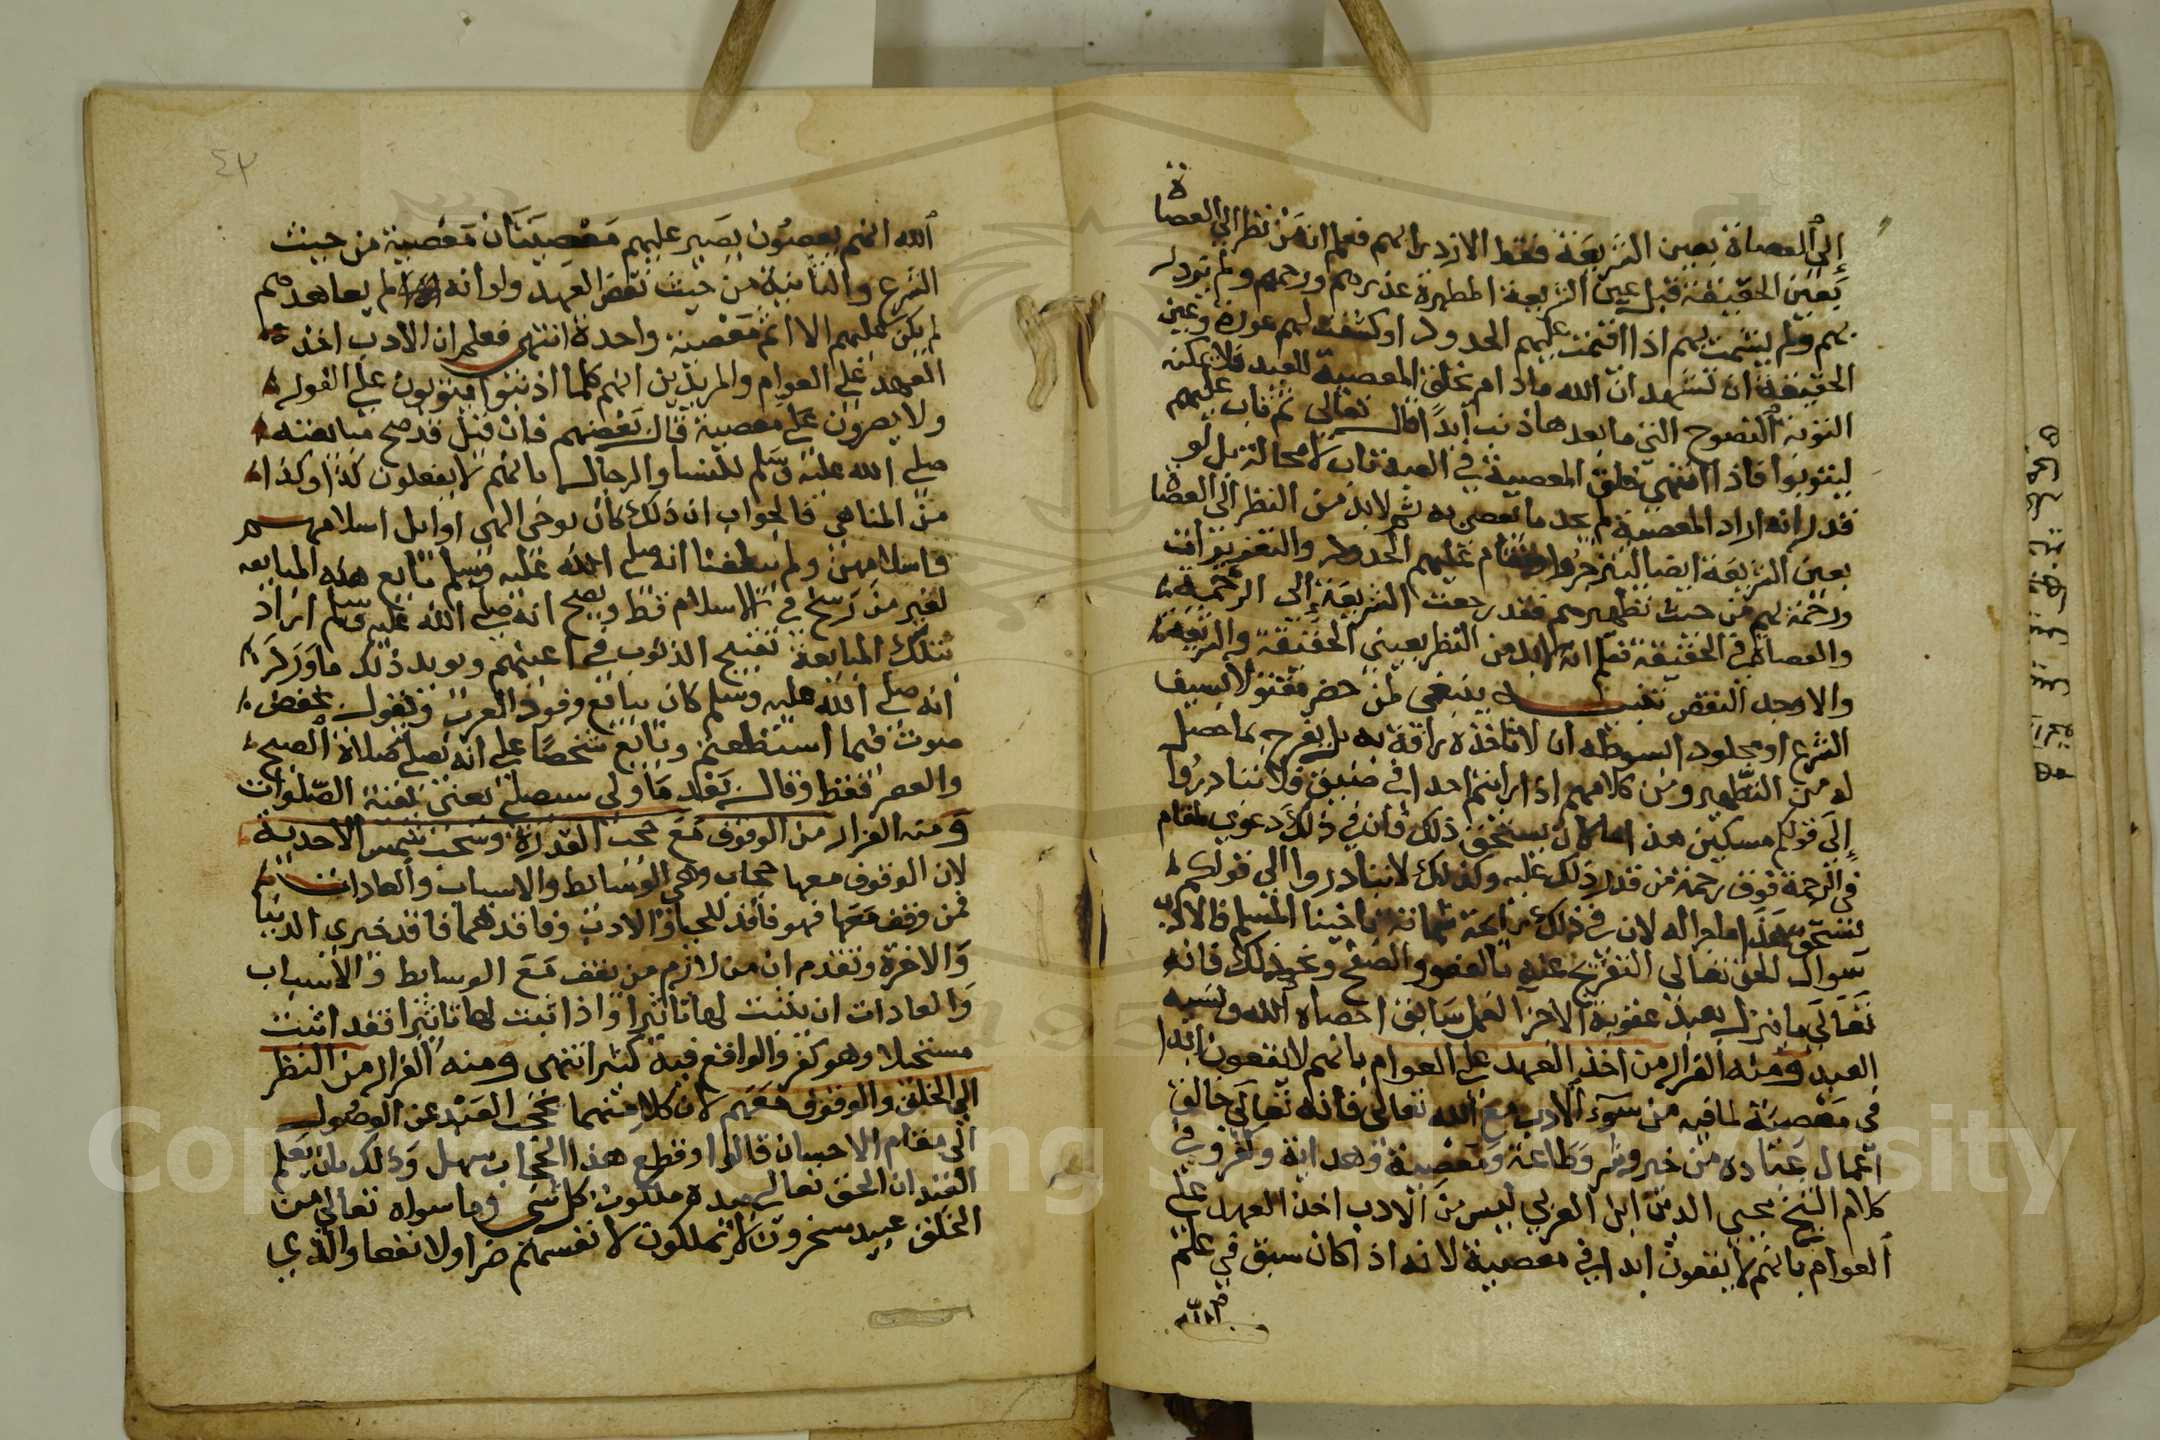 إلى العصاة بعين الشريعة فقط الازدرا بهم فعلم انه من نظر الى العصاة
بعين الحقيقة قبل عين الشريعة المطهرة عذرهم ورحمهم ولم يزدر
بهم ولم يشمت بهم اذا اقيمت عليهم الحدود او كشفت لهم عورة وعين
الحقيقة ان تشهد ان الله مادام يخلق المعصية للعبد فلا يمكنه
التوبة النصوح التي ما بعدها ذنب ابدًا قال تعالى ثم تاب عليهم
ليتوبوا فاذا انتهى خلق المعصية في العبد تاب لا محالة بل لو
قدر انه اراد المعصية لم يجد ما يعصي به ثم لابد من النظر الى العصاة
بعين الشريعة ايضا لينزجروا عليهم الحدود والتعزيرات
ورحمة بهم من حيث تطهيرهم فقد رجعت الشريعة إلى الرحمة
والعصاة في الحقيقة فعلم انه لابد من النظر بعيني الحقيقة والشريعة
والا وجد النقص تنبيه ينبغي لمن حضر مقتولا بسيف
الشرع او مجلود السوطه ان لا تاخذه رافة به بل يفرح بما حصل
له من التطهير ومن كلامهم اذا رايتم احدا في ضيق فلا تبادروا
إلى قولكم مسكين هذا ما كان يستحق ذلك فان في ذلك دعوي مقام
في الرحمة فوق رحمة من قدر ذلك عليه وكذلك لا تبادروا الى قولكم
يستحق هذا ما جرا له لان في ذلك رائحة شماتة باخينا المسلم فالادب
سوال الحق تعالى التفريج عنه بالعفو والصفح ونحو ذلك فانه
تعالى ما ينزل بعبد عقوبة الا جزا لعمل سابق احصاه الله ونسيه
العبد ومنه الفرار من اخذ العهد على العوام بانهم لا يقعون ابدا
في معصية لما فيه من سوء الادب مع الله تعالى فانه تعالى خالق
اعمال عباده من خير وشر وطاعة ومعصية وهداية وكفر وفي
كلام الشيخ محيي الدين ابن العربي ليس من الادب اخذ العهد على
العوام بانهم لا يقعون ابدا في معصية لانه اذا كان سبق في علم
الله
٤٣
الله انهم يعصون يصير عليهم معصيتان معصية من حيث
الشرع والثانية من حيث نقض العهد ولو انه لم يعاهدهم
لم يكن عليهم الا اثم معصية واحدة انتهى فعلم ان الادب اخذ
العهد على العوام والمريدين انهم كلما اذنبوا يتوبون على الفور
ولا يصرون على معصية قال بعضهم فان قيل قد صح مبايعته
صلى الله عليه وسلم للنسا والرجال بانهم لا يفعلون كذا وكذا
من المناهي فالجواب ان ذلك كان بوحي الهي اوايل اسلامهم
واسلامهن ولم يبلغنا انه صلى الله عليه وسلم بايع هذه المبايعه
لغير من رسخ في الاسلام قط ويصح انه صلى الله عليه وسلم اراد
بتلك المبايعة تقبيح الذنوب في اعينهم ويويد ذلك ما ورد
انه صلى الله عليه وسلم كان يبايع وفود العرب ويقول بخفض
صوت فيما استطعتم وبايع شخصًا على انه يصلي صلاة الصبح
والعصر فقط وقال بعد ما ولي سيصلي يعني بقية الصلوات
ومنه الفرار من الوقوف مع حجب القدرة وسحب شمس الاحدية
لان الوقوف معها حجاب وهي الوسائط والاسباب والعادات
فمن وقف معها فهو فاقد للحيا والادب وفاقدهما فاقد خيري الدنيا
والاخرة وتقدم ان من لازم من يقف مع الوسايط والاسباب
والعادات ان يثبت لها تاثيرا واذا ثبت لها تاثيرا فقد اثبت
مستحيلا وهو كفر والواقع فيه كثير انتهى ومنه الفرار من النظر
الى الخلق والوقوف معهم لان كلا منهما يحجب العبد عن الوصول
الى مقام الاحسان قالوا وقطع هذا الحجاب سهل وذلك بان يعلم
العبد ان الحق تعالى بيده ملكوت كل شي وما سواه تعالى من
الخلق عبيد مسخرون لا يملكون لانفسهم ضرا ولا نفعا والذي